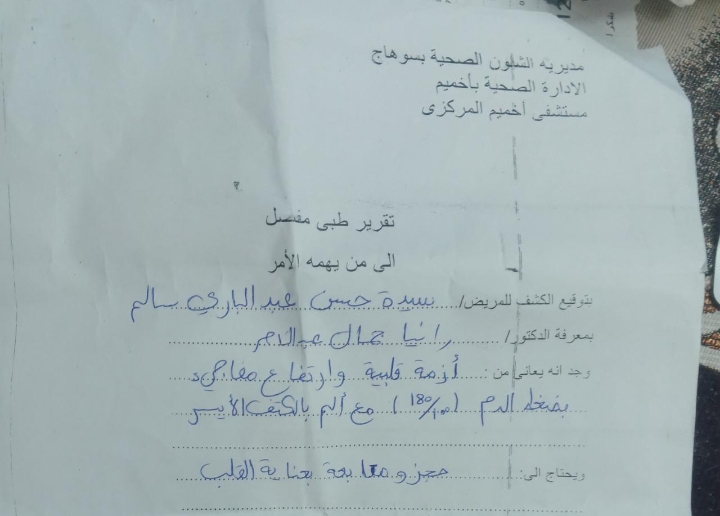 مديرية الشئون الصحية بسوهاج
الادارة الصحية بأخميم
مستشفى أخميم المركزى
تقرير طبى مفصل
الى من يهمه الأمر
بتوقيع الكشف للمريض/ سيدة حسن عبد الباري سالم
بمعرفة الدكتور/ رانيا جمال عبد
وجد انه يعانى من: أزمة قلبية وارتفاع مفاجيء
بضغط الدم (180/100) مع ألم بالكتف الأيسر
ويحتاج الى: حجز ومتابعة بعناية القلب